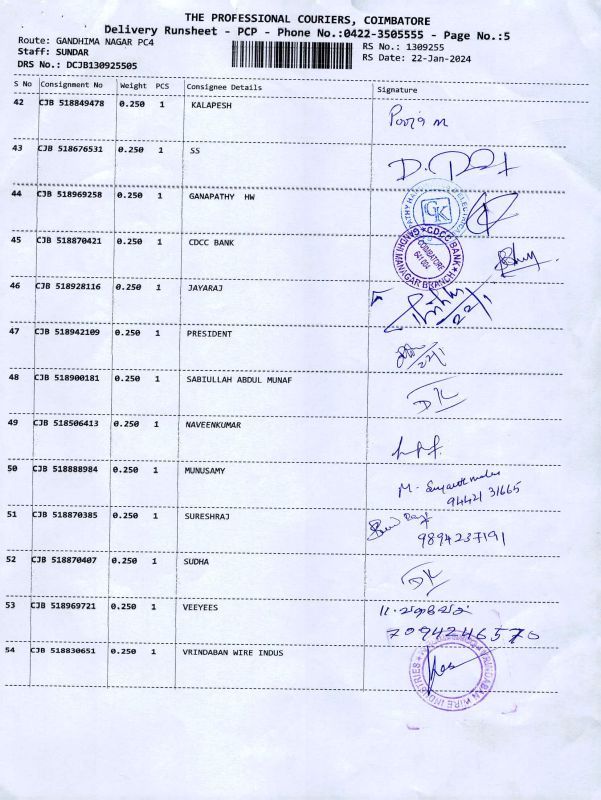 THE PROFESSIONAL COURIERS, COIMBATORE
Delivery Runsheet - PCP - Phone No.:0422-3505555 - Page No.:5
Route: GANDHIMA NAGAR PC4
Staff: SUNDAR
DRS No.: DCJB130925505
RS No.: 1309255
RS Date: 22-Jan-2024
S No Consignment No Weight PCS Consignee Details Signature
42 CJB 518849478 0.250 1 KALAPESH Pooja m
43 CJB 518676531 0.250 1 SS
44 CJB 518969258 0.250 1 GANAPATHY HW GK
45 CJB 518870421 0.250 1 CDCC BANK CDCC BANK COIMBATORE 641 004 GANDHI MANAGAR BRANCH
46 CJB 518928116 0.250 1 JAYARAJ 22/1
47 CJB 518942109 0.250 1 PRESIDENT 22/1
48 CJB 518900181 0.250 1 SABIULLAH ABDUL MUNAF DK
49 CJB 518506413 0.250 1 NAVEENKUMAR
50 CJB 518888984 0.250 1 MUNUSAMY M.
94421 31665
51 CJB 518870385 0.250 1 SURESHRAJ
9894237191
52 CJB 518870407 0.250 1 SUDHA DK
53 CJB 518969721 0.250 1 VEEYEES
7094246570
54 CJB 518830651 0.250 1 VRINDABAN WIRE INDUS VRINDABAN WIRE INDUSTRIES